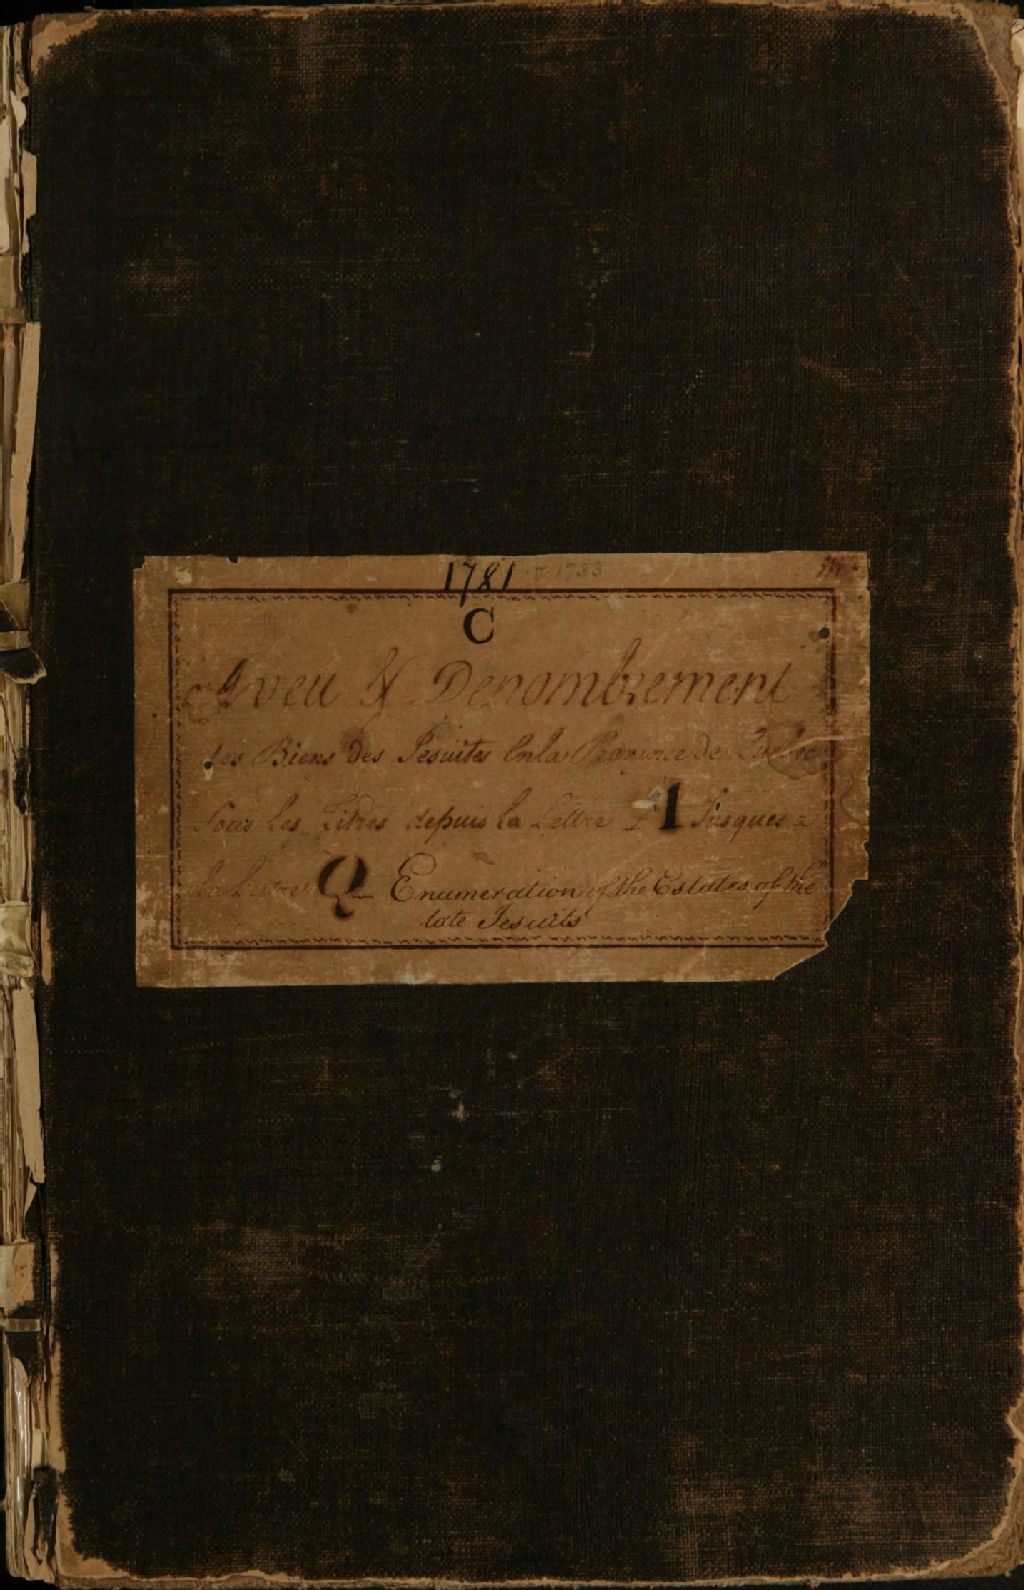 1781 & 1733
C
Aveu & Denombrement
des Biens des Jesuites En la Province de Quebec
Sous les Titres depuis la Lettre A Jusques a
la Lettre Q Enumeration of the Estates of the
late Jesuits